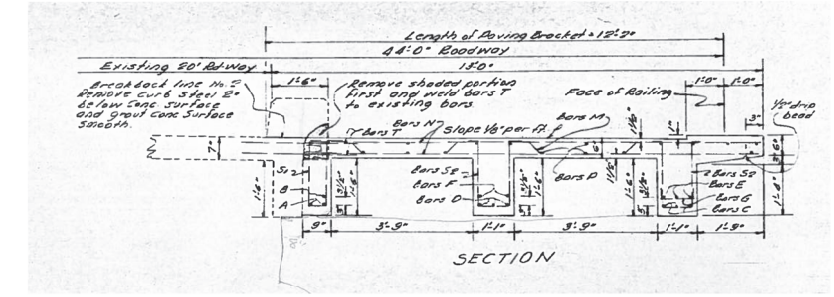 Length of Paving Bracket = 12'-2"
44'-0" Roadway
Existing 20' Rdway
13'-0"
1'-6"
1'-0"
1'-0"
Breakback line No. 2
Remove curb steel 2"
below Conc. surface
and grout Conc Surface
smooth.
Remove shaded portion
first and weld bars T
to existing bars
Face of Railing
1/2" drip
bead
3"
Bars T
Bars N
Slope 1/8" per ft.
Bars M
1"
7"
6"
6"
Bars P
S12
B
A
Bars S2
Bars F
Bars D
Bars S2
Bars E
Bars G
Bars C
1'-6"
1'-6"
1'-6"
1'-6"
9"
3'-9"
1'-1"
3'-9"
1'-1"
1'-9"
SECTION